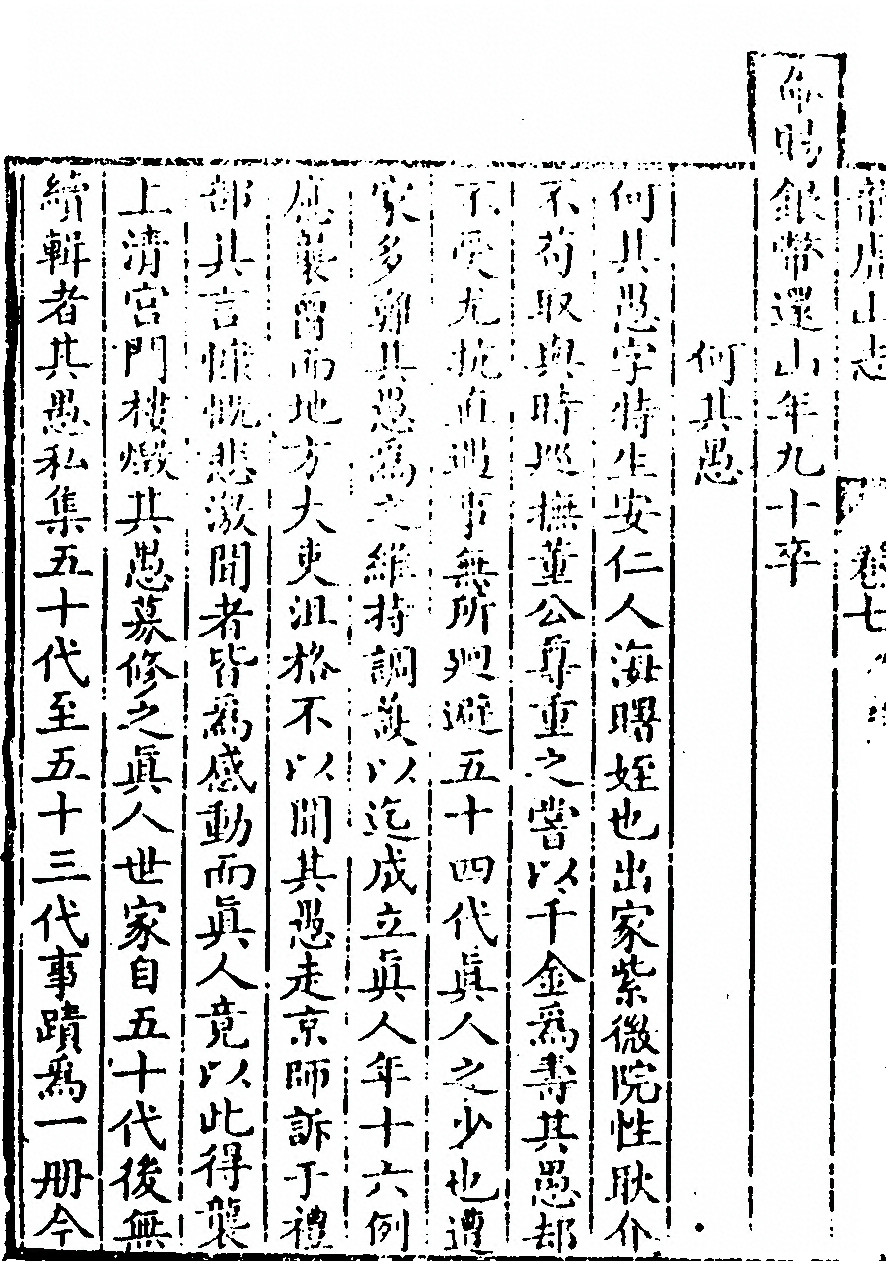 龍虎山志 卷七
命賜銀幣還山年九十卒
何其愚
何其愚字特生安仁人海曙姪也出家紫微院性耿介
不苟取與時巡撫董公尊重之嘗以千金爲壽其愚却
不受尤抗直遇事無所廻避五十四代眞人之少也遭
家多難其愚爲之維持調護以迄成立眞人年十六例
應襲爵而地方大吏沮格不以聞其愚走京師訴于禮
部其言慷慨悲激聞者皆爲感動而眞人竟以此得襲
上清宮門樓燬其愚募修之眞人世家自五十代後無
續輯者其愚私集五十代至五十三代事蹟爲一册今